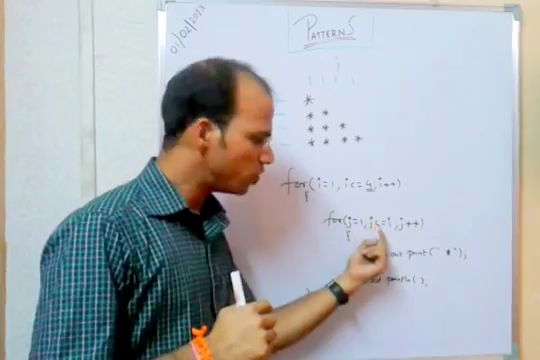 01/02/2013
PATTERNS
*
* *
* * *
* * * *
for(i=1, i<=4, i++)
{
for(j=1, j<=i, j++)
{
out print(" *");
out println( );
}